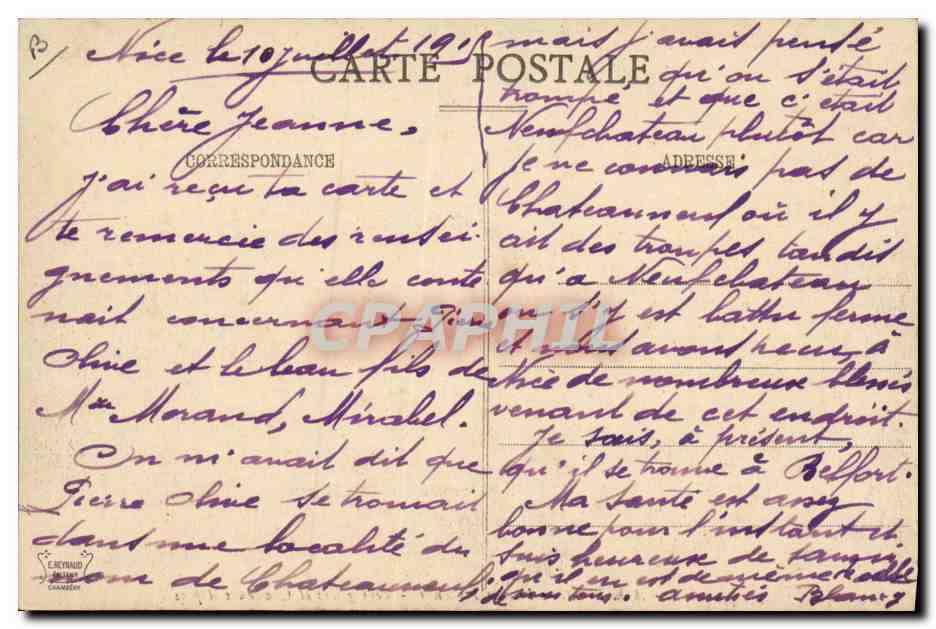 B
Nice le 10 juillet 191
CARTE POSTALE
Chère Jeanne,
CORRESPONDANCE
J'ai reçu ta carte et
te remercie des rensei-
gnements qu'elle conte
nait concernant
Olive et le beau fils de
Mme Morand, Mirabel.
On m'avait dit que
Pierre Olive se trouvait
dans une localité du
nom de Chateauneuf,
mais j'avais pensé
qu'on s'était
trompé et que c'était
Neufchateau plutôt car
ADRESSE
je ne connais pas de
Chateauneuf où il y
ait des troupes tandit
qu'a Neufchateau
on s'y est battu ferme
et nous avons reçu à
Nice de nombreux blessés
venant de cet endroit.
Je sais, à présent,
qu'il se trouve à Belfort.
Ma santé est assez
bonne pour l'instant et
suis heureuse de savoir
qu'il en est de même de celle
de vous tous. amitiés
E. REYNAUD
CHAMBÉRY
CPAPHIL